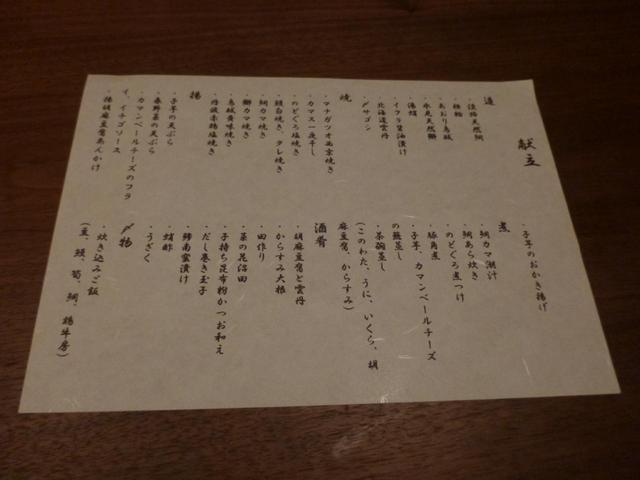 献立
造
・淡路天然鯛
・極鮪
・あおり烏賊
・氷見天然鰤
・湯蛸
・イクラ醤油漬け
・北海道雲丹
・〆サゴシ
焼
・マナガツオ西京焼き
・カマス一夜干し
・のどぐろ塩焼き
・鰻白焼き、タレ焼き
・鯛カマ焼き
・鰤カマ焼き
・烏賊黄味焼き
・丹波赤鶏塩焼き
揚
・子芋の天ぷら
・春野菜の天ぷら
・カマンベールチーズのフラ
イ、イチゴソース
・揚胡麻豆腐あんかけ
・子芋のおかき揚げ
煮
・鯛カマ潮汁
・鯛あら炊き
・のどぐろ煮つけ
・豚角煮
・子芋、カマンベールチーズ
の蕪蒸し
・茶碗蒸し
(このわた、うに、いくら、胡
麻豆腐、からすみ)
酒肴
・胡麻豆腐と雲丹
・からすみ大根
・田作り
・菜の花沼田
・子持ち昆布粉かつお和え
・だし巻き玉子
・鯡南蛮漬け
・蛸酢
・うざく
〆物
・炊き込みご飯
(豆、鰻、筍、鯛、鶏牛房)